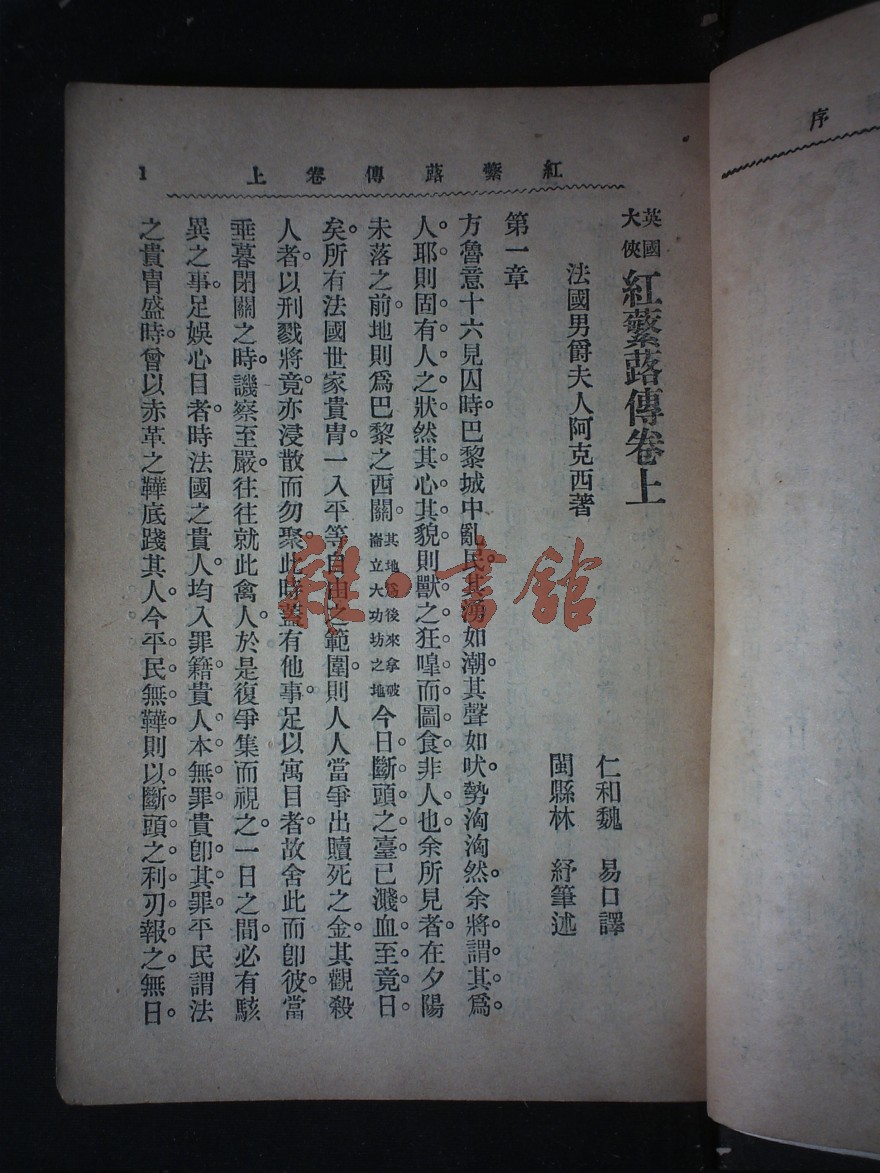 序
紅蘩蕗傳卷上
1
英國大俠 紅蘩蕗傳卷上
法國男爵夫人阿克西著
仁和魏 易口譯
閩縣林 紓筆述
第一章
方魯意十六見囚時。巴黎城中亂民其湧如潮。其聲如吠。勢洶洶然。余將謂其爲。
人耶。則固有人之狀。然其心其貌則獸之狂嘷而圖食。非人也。余所見者在夕陽
未落之前。地則爲巴黎之西關。其地爲後來拿破崙立大功坊之地今日。斷頭之臺。已濺血至竟日。
矣。所有法國世家貴胄。一入平等自由之範圍。則人人當爭出贖死之金。其觀殺
人者。以刑戮將竟。亦浸散而勿聚。此時蓋有他事足以寓目者。故舍此而卽彼。當
垂暮閉關之時。譏察至嚴。往往就此禽人。於是復爭集而視之。一日之間。必有駭
異之事。足娛心目者。時法國之貴人。均入罪籍。貴人本無罪。貴卽其罪。平民謂法
之貴胄盛時。曾以赤革之鞾底踐其人。今平民無鞾。則以斷頭之利刃報之。無日。
雜·書館